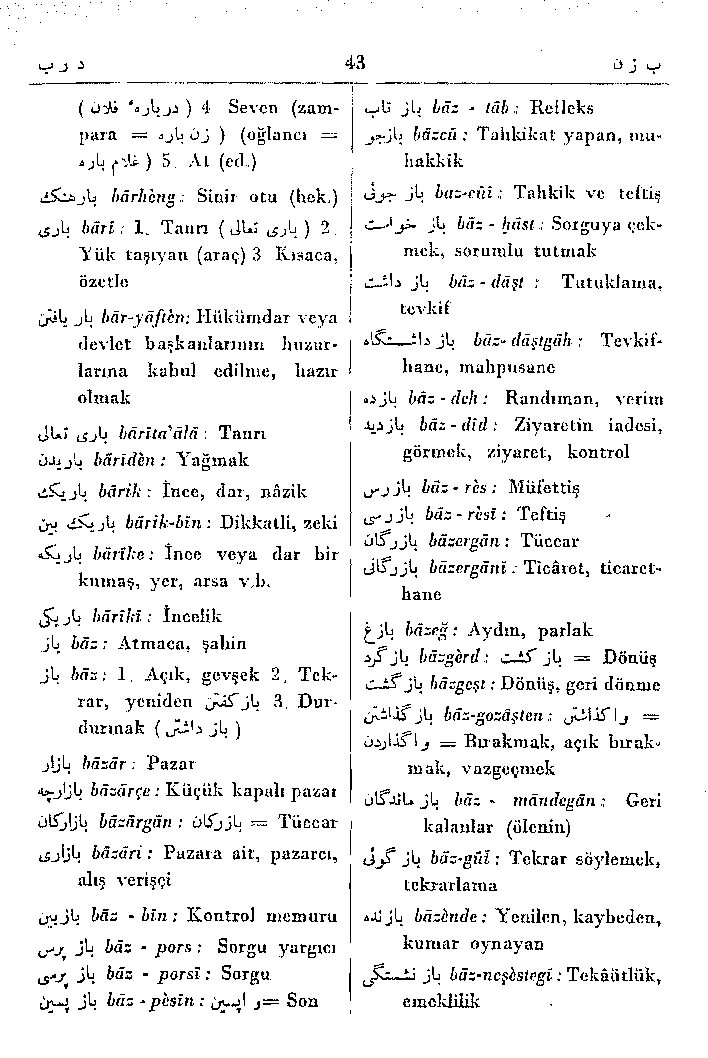 د ر ب
43
ب ز ن
( درباره، فلان ) 4 Seven (zam-
para = زن باره ) (oğlancı =
غلام باره ) 5. At (ed.)
بارهنگ bârhèng : Sinir otu (hek.)
باری bârî : 1. Tanrı ( باری تعالی ) 2.
Yük taşıyan (araç) 3 Kısaca,
özetle
بار یافتن bâr-yâftèn: Hükümdar veya
devlet başkanlarının huzur-
larına kabul edilme, hazır
olmak
باری تعالی bârîta'âlâ : Tanrı
باریدن bârîdèn : Yağmak
باریك bârîk : İnce, dar, nâzik
باریك بین bârîk-bîn : Dikkatli, zeki
باریکه bârîke : İnce veya dar bir
kumaş, yer, arsa v.b.
باریکی bârîkî : İncelik
باز bâz : Atmaca, şahin
باز bâz : 1. Açık, gevşek 2. Tek-
rar, yeniden بازکفتن 3. Dur-
durmak ( باز داشتن )
بازار bâzâr : Pazar
بازارچه bâzârçe : Küçük kapalı pazar
بازارکان bâzârgân : بازرکان = Tüccar
بازاری bâzâri : Pazara ait, pazarcı,
alış verişçi
بازبین bâz - bîn : Kontrol memuru
باز پرس bâz - pors : Sorgu yargıcı
باز پرسی bâz - porsî : Sorgu
باز پسین bâz - pèsîn : واپسین = Son
باز تاب bâz - tâb : Refleks
بازجو bâzcû : Tahkikat yapan, mu-
hakkik
باز جوئی baz-cûî : Tahkik ve teftiş
باز خواست bâz - hâst : Sorguya çek-
mek, sorumlu tutmak
باز داشت bâz - dâşt : Tutuklama,
tevkif
باز داشتگاه bâz- dâştgâh : Tevkif-
hane, mahpusane
بازده bâz - deh : Randıman, verim
بازدید bâz - did : Ziyaretin iadesi,
görmek, ziyaret, kontrol
بازرس bâz - rès : Müfettiş
بازرسی bâz - rèsî : Teftiş
بازرگان bâzergân : Tüccar
بازرگانی bâzergânî : Ticâret, ticaret-
hane
بازغ bâzeğ : Aydın, parlak
بازگرد bâzgèrd : باز گشت = Dönüş
باز گشت bâzgeşt : Dönüş, geri dönme
باز گذاشتن bâz-gozâşten : واگذاشتن =
واگذاردن = Bırakmak, açık bırak-
mak, vazgeçmek
باز ماندگان bâz - mândegân : Geri
kalanlar (ölenin)
باز گوئی bâz-gûî : Tekrar söylemek,
tekrarlama
بازنده bâzènde : Yenilen, kaybeden,
kumar oynayan
باز نشستگی bâz-neşèstegî : Tekâütlük,
emeklilik